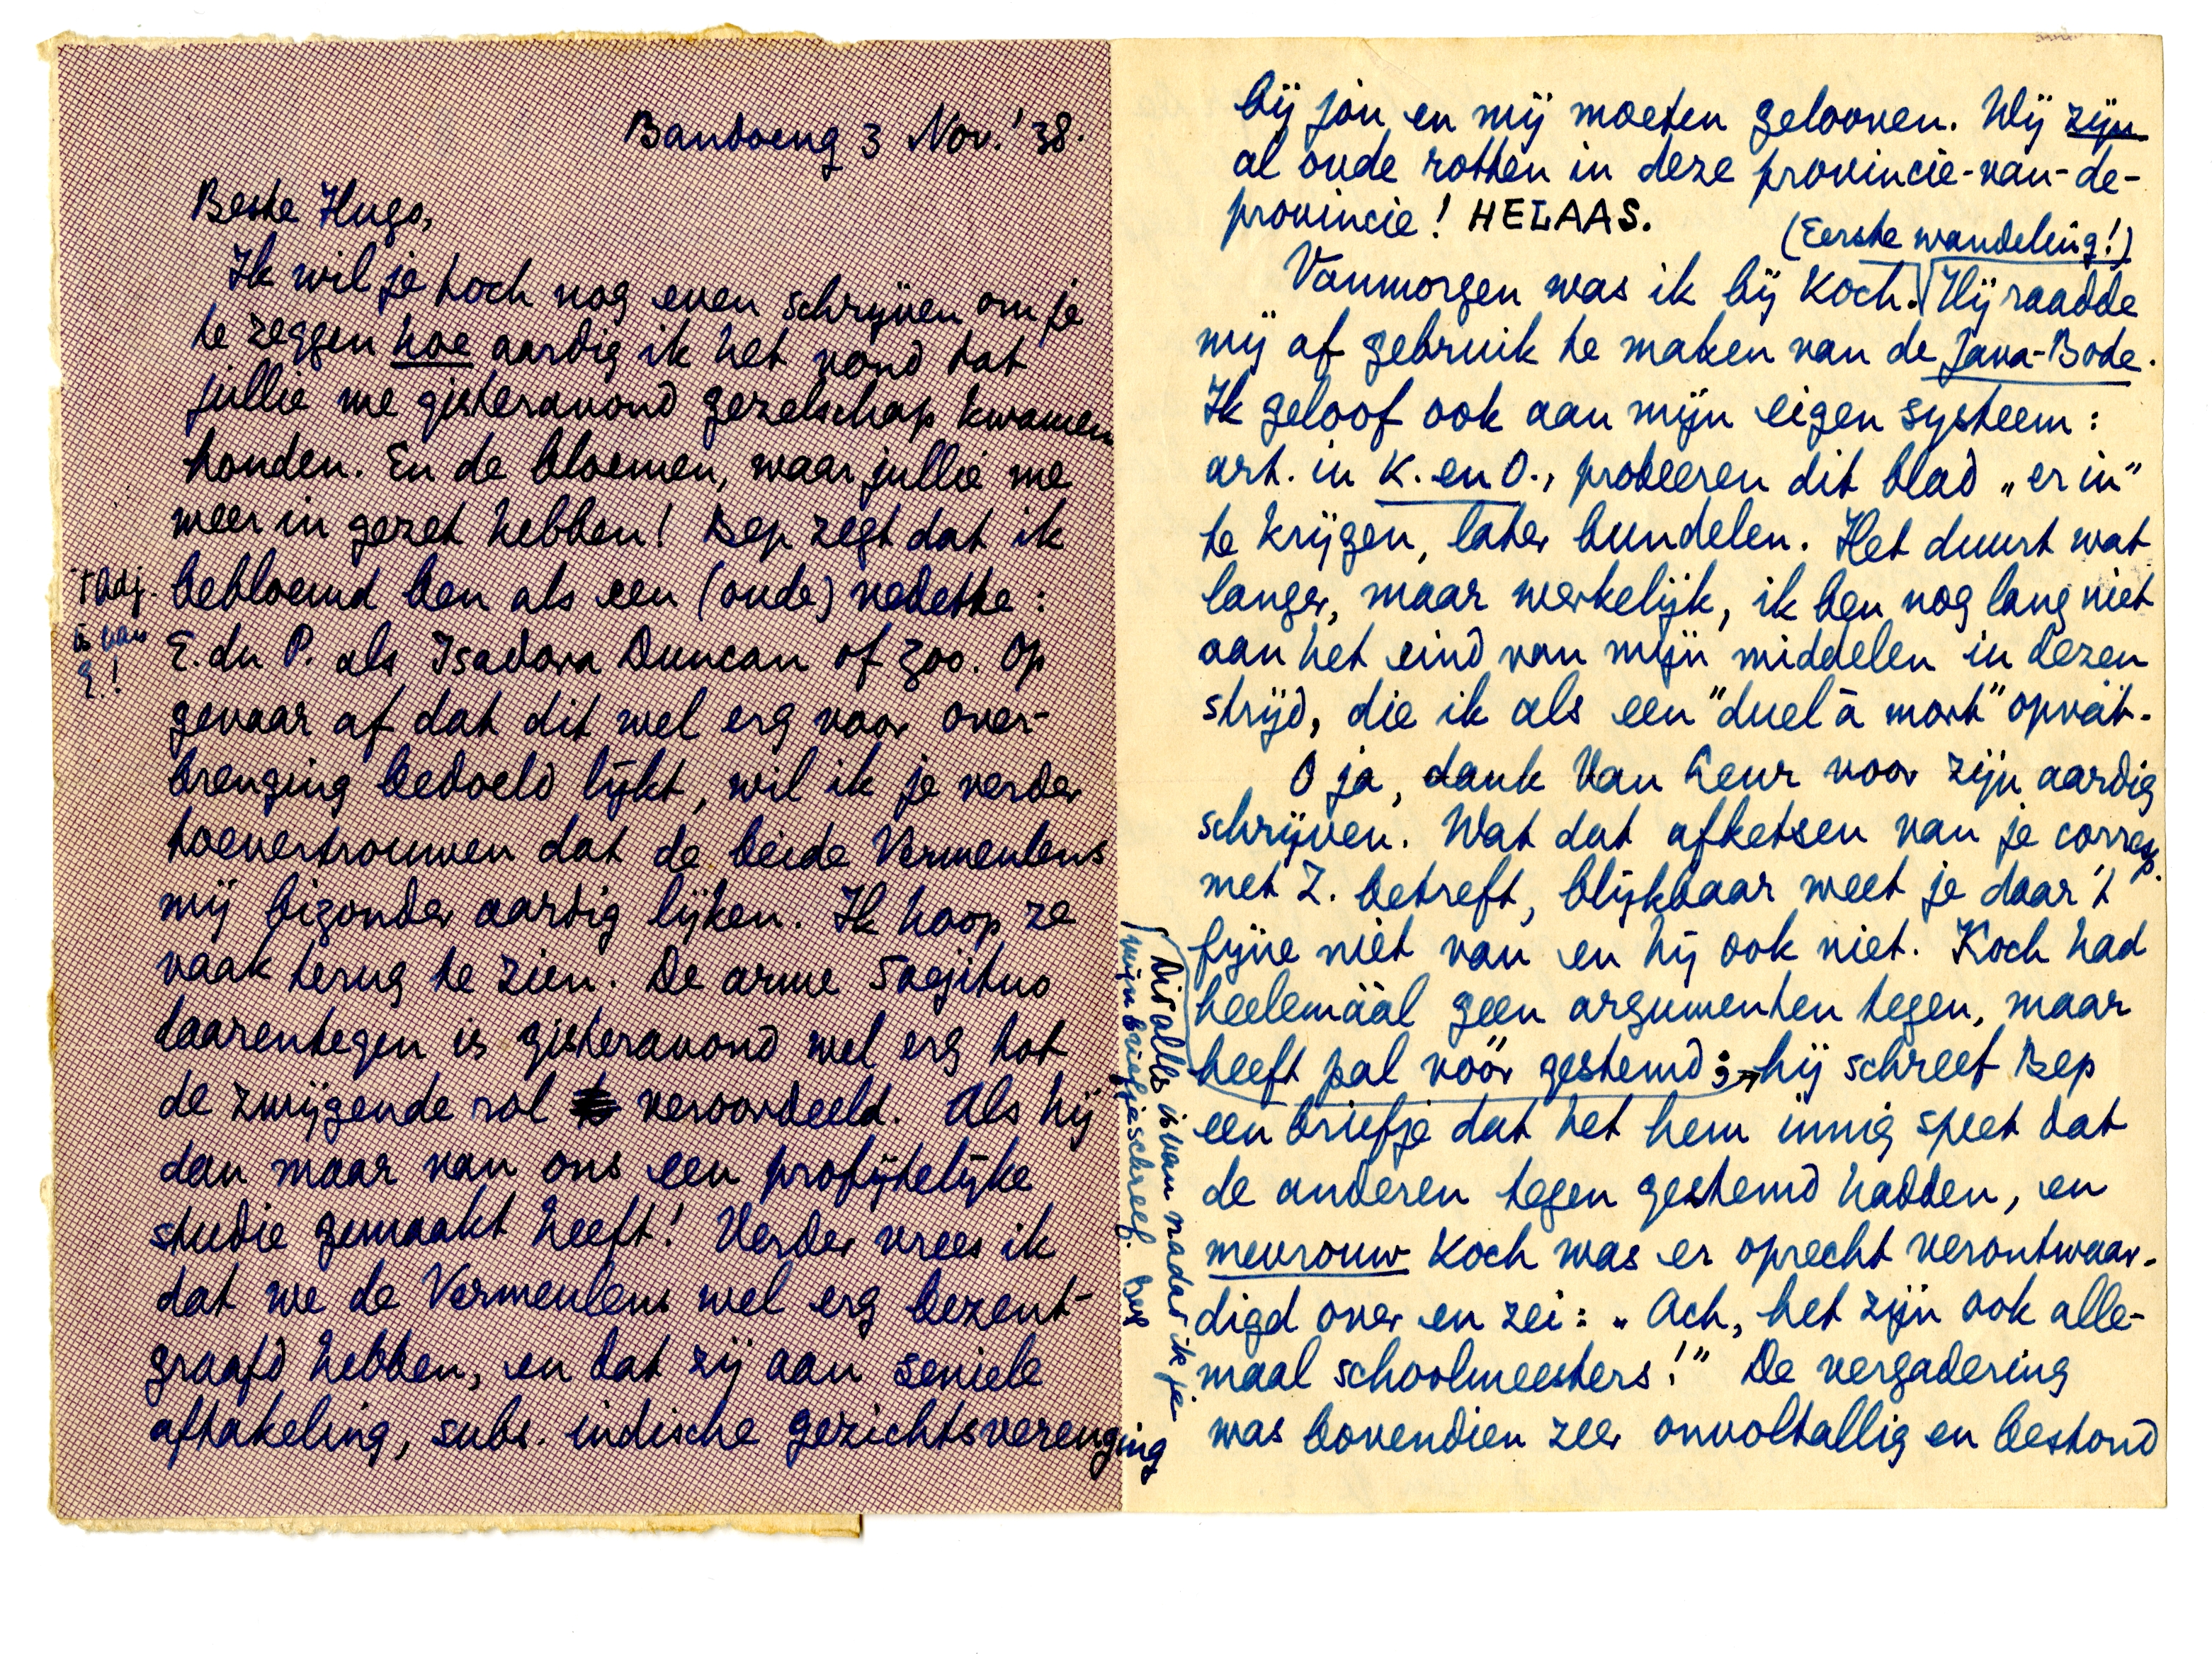 Bandoeng 3 Nov.' 38.
Beste Hugo,
Ik wil je toch nog even schrijven om je
te zeggen hoe aardig ik het vond dat
jullie me gisteravond gezelschap kwamen
houden. En de bloemen, waar jullie me
weer in gezet hebben! Bep zegt dat ik
bebloemd ben als een (oude) vedette:
't adj.
is van
E.!
E. du P. als Isadora Duncan of zoo. Op
gevaar af dat dit wel erg voor over-
brenging bedoeld lijkt, wil ik je verder
toevertrouwen dat de beide Vermeulens
mij bizonder aardig lijken. Ik hoop ze
vaak terug te zien. De arme Soejitno
daarentegen is gisteravond wel erg tot
de zwijgende rol veroordeeld. Als hij
dan maar van ons een profijtelijke
studie gemaakt heeft! Verder vrees ik
dat we de Vermeulens wel erg bezent-
graafd hebben, en dat zij aan seniele
aftakeling, subs. indische gezichtsverenging
bij jou en mij moeten gelooven. Wij zijn
al oude rotten in deze provincie-van-de-
provincie! HELAAS.
(Eerste wandeling!)
Vanmorgen was ik bij Koch. Hij raadde
mij af gebruik te maken van de Java-Bode.
Ik geloof ook aan mijn eigen systeem:
art. in K. en O., probeeren dit blad „er in"
te krijgen, later bundelen. Het duurt wat
langer, maar werkelijk, ik ben nog lang niet
aan het eind van mijn middelen in dezen
strijd, die ik als een "duel à mort" opvat.
O ja, dank Van Leur voor zijn aardig
schrijven. Wat dat afketsen van je corresp.
met Z. betreft, blijkbaar weet je daar 't
fijne niet van en hij ook niet. Koch had
heelemáál geen argumenten tegen, maar
heeft pal vóór gestemd; hij schreef Bep
een briefje dat het hem innig speet dat
de anderen tegen gestemd hadden, en
mevrouw Koch was er oprecht verontwaar-
digd over en zei: „Ach, het zijn ook alle-
maal schoolmeesters!" De vergadering
was bovendien zeer onvoltallig en bestond
Dit alles is van nadat ik je
mijn briefje schreef. Bep